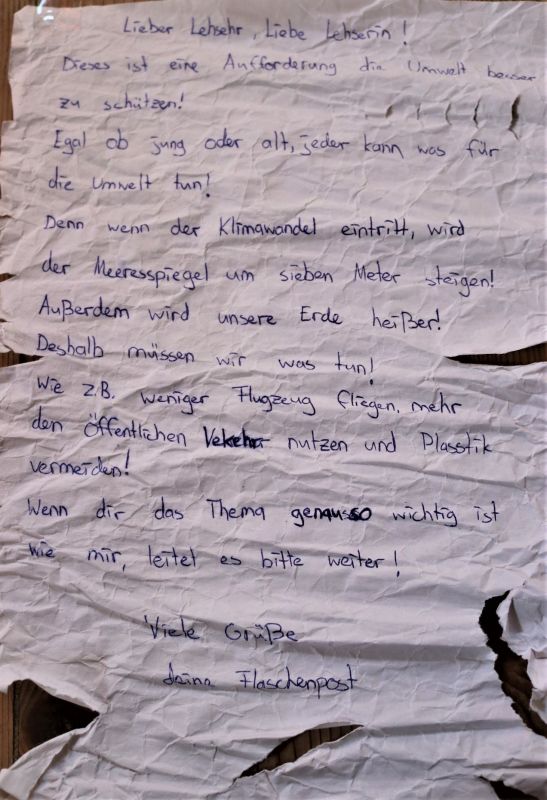 Lieber Lehsehr, Liebe Lehserin!
Dieses ist eine Aufforderung die Umwelt besser
zu schützen!
Egal ob jung oder alt, jeder kann was für
die Umwelt tun!
Denn wenn der Klimawandel eintritt, wird
der Meeresspiegel um sieben Meter steigen!
Außerdem wird unsere Erde heißer!
Deshalb müssen wir was tun!
Wie z.B. weniger Flugzeug fliegen, mehr
den öffentlichen Vekehr nutzen und Plasstik
vermeiden!
Wenn dir das Thema genausso wichtig ist
wie mir, leitet es bitte weiter!
Viele Grüße
deine Flaschenpost